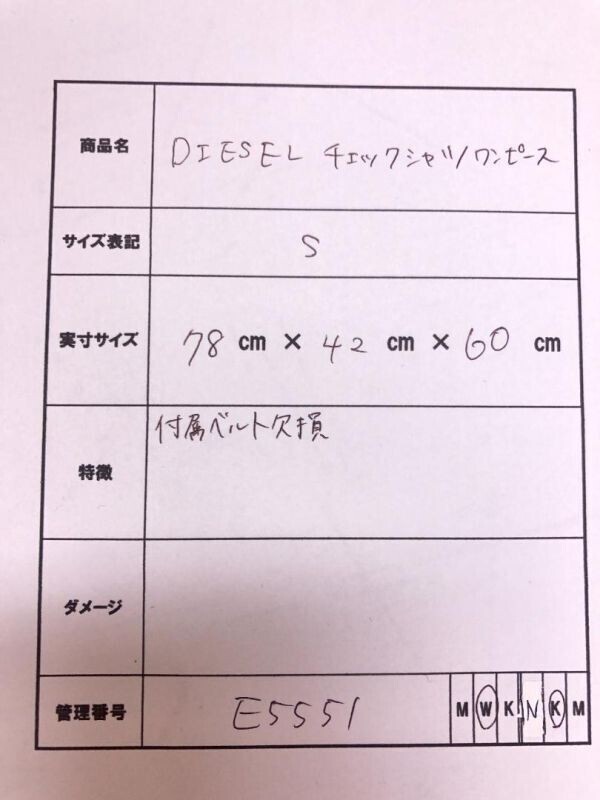 商品名 DIESEL チェックシャツワンピース
サイズ表記 S
実寸サイズ 78 cm × 42 cm × 60 cm
特徴 付属ベルト欠損
ダメージ
管理番号 E5551 M W K N K M